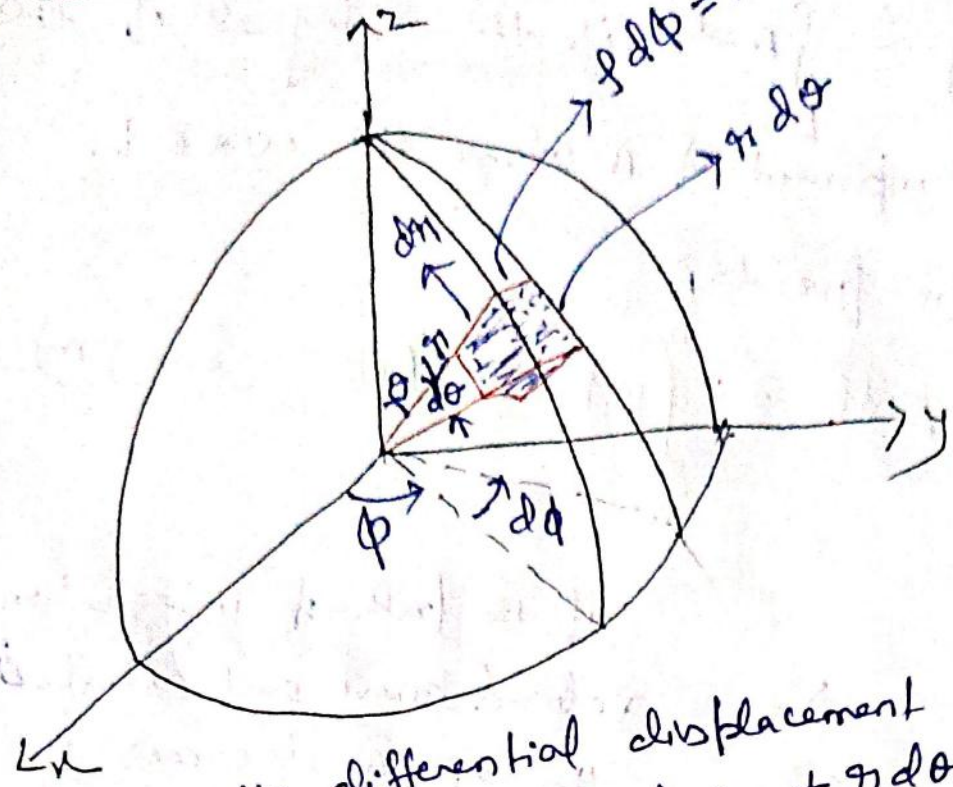 z
ρ dφ =
r dθ
dr
θ
r
dθ
y
φ
dφ
x
differential displacement
r dθ